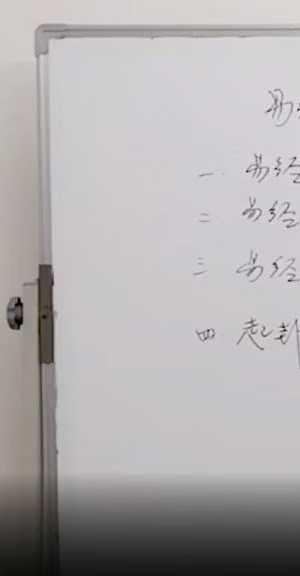 易经
一 易经
二 易经
三 易经
四 起卦